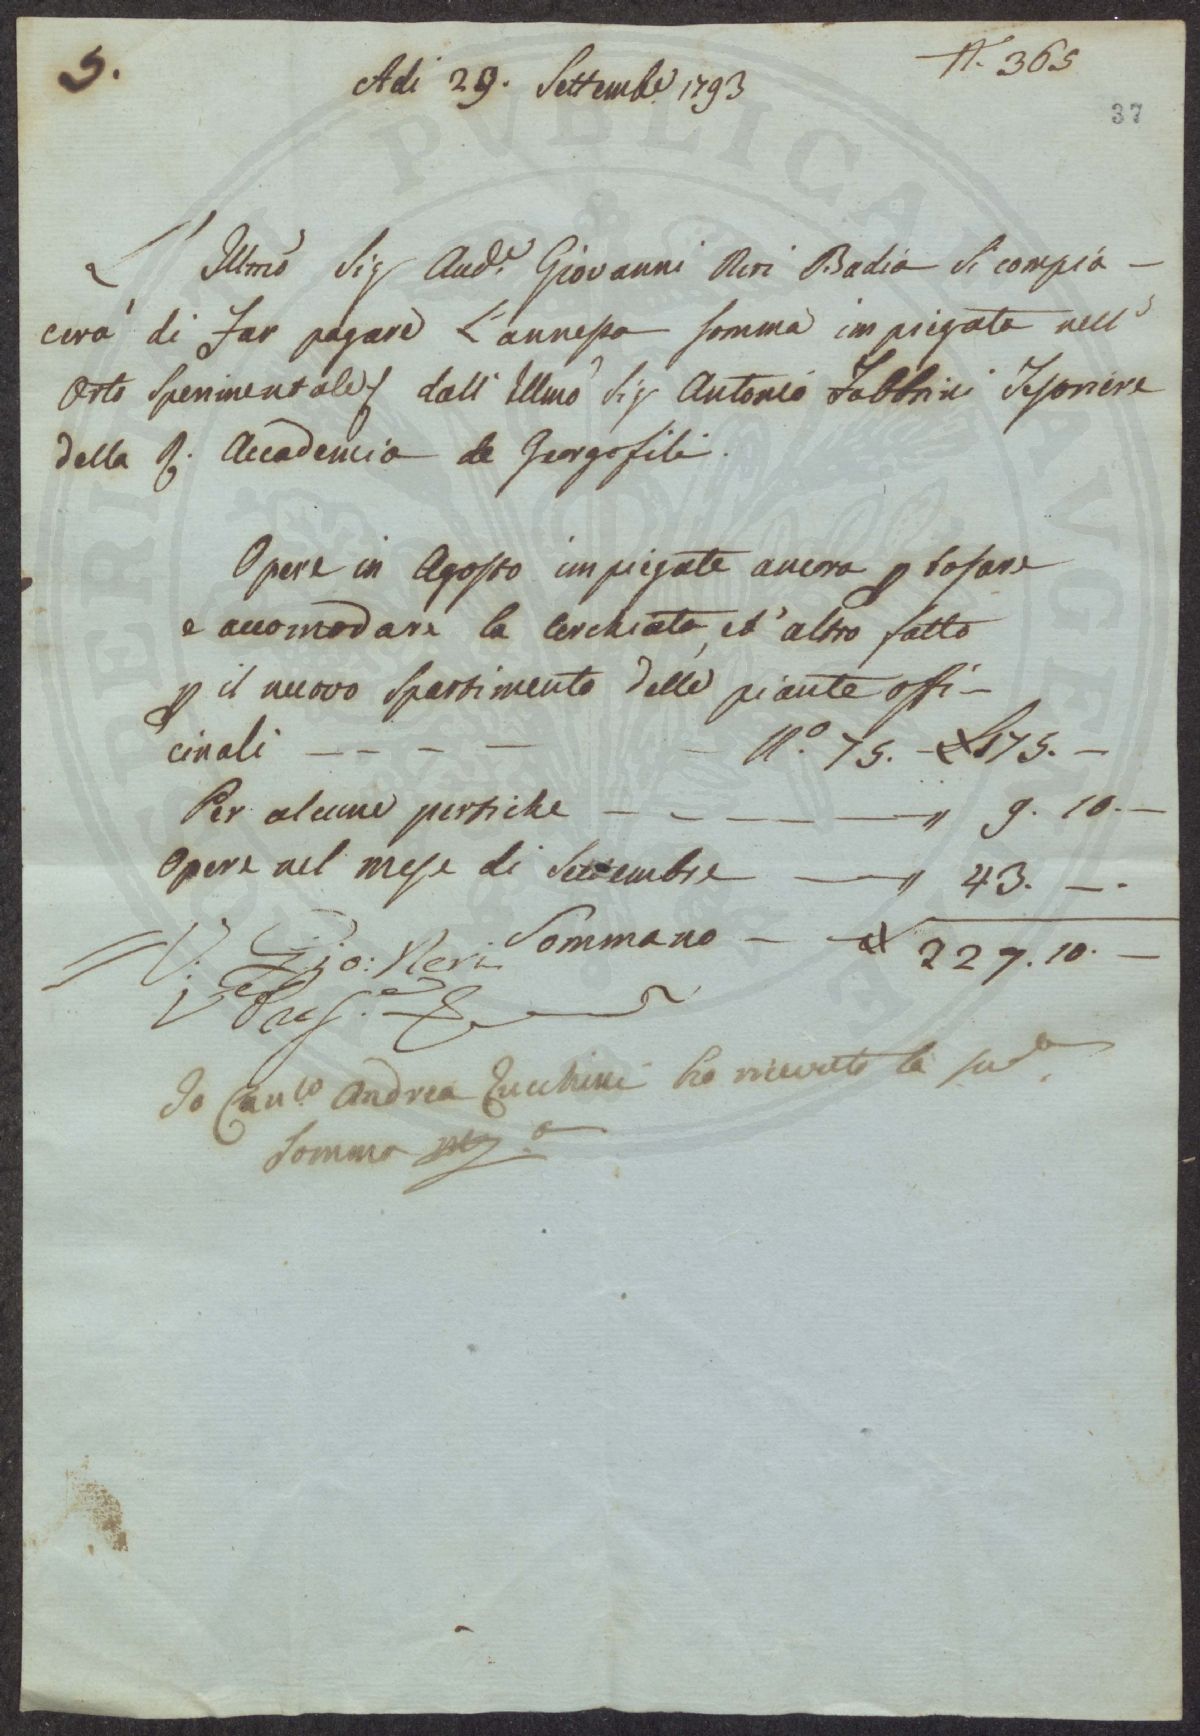 5.
N. 365
Adi 29. Settembe 1793
37
L' Illmo Sig Aude. Giovanni Neri Badia Si compia-
cerà di Far pagare L'annessa somma impiegata nell'
Orto Sperimentale dall' Illmo Sig Antonio Fabbrini Tesoriere
della R. Accademia de Georgofili.
Opere in Agosto impiegate ancora p tosare
e accomodare la Cerchiata, et' altro fatto
p il nuovo Spartimento delle piante offi-
cinali - - - - - No. 75. - £ 175. -
Per alcune pertiche - - - - " 9. 10. -
Opere nel mese di Settembre - " 43. -.
Sommano - £ 227. 10. -
V. Gio: Neri
V. Pres.e
Io Can.co Andrea Zucchini ho ricevuto la sud.a
Somma